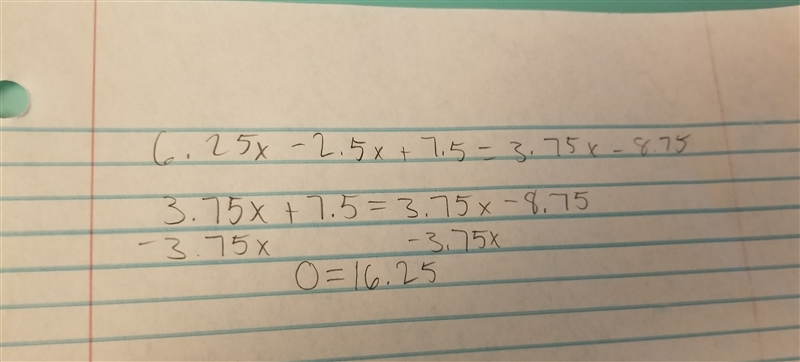 6.25x - 2.5x + 7.5 = 3.75x - 8.75
3.75x + 7.5 = 3.75x - 8.75
-3.75x -3.75x
0 = 16.25